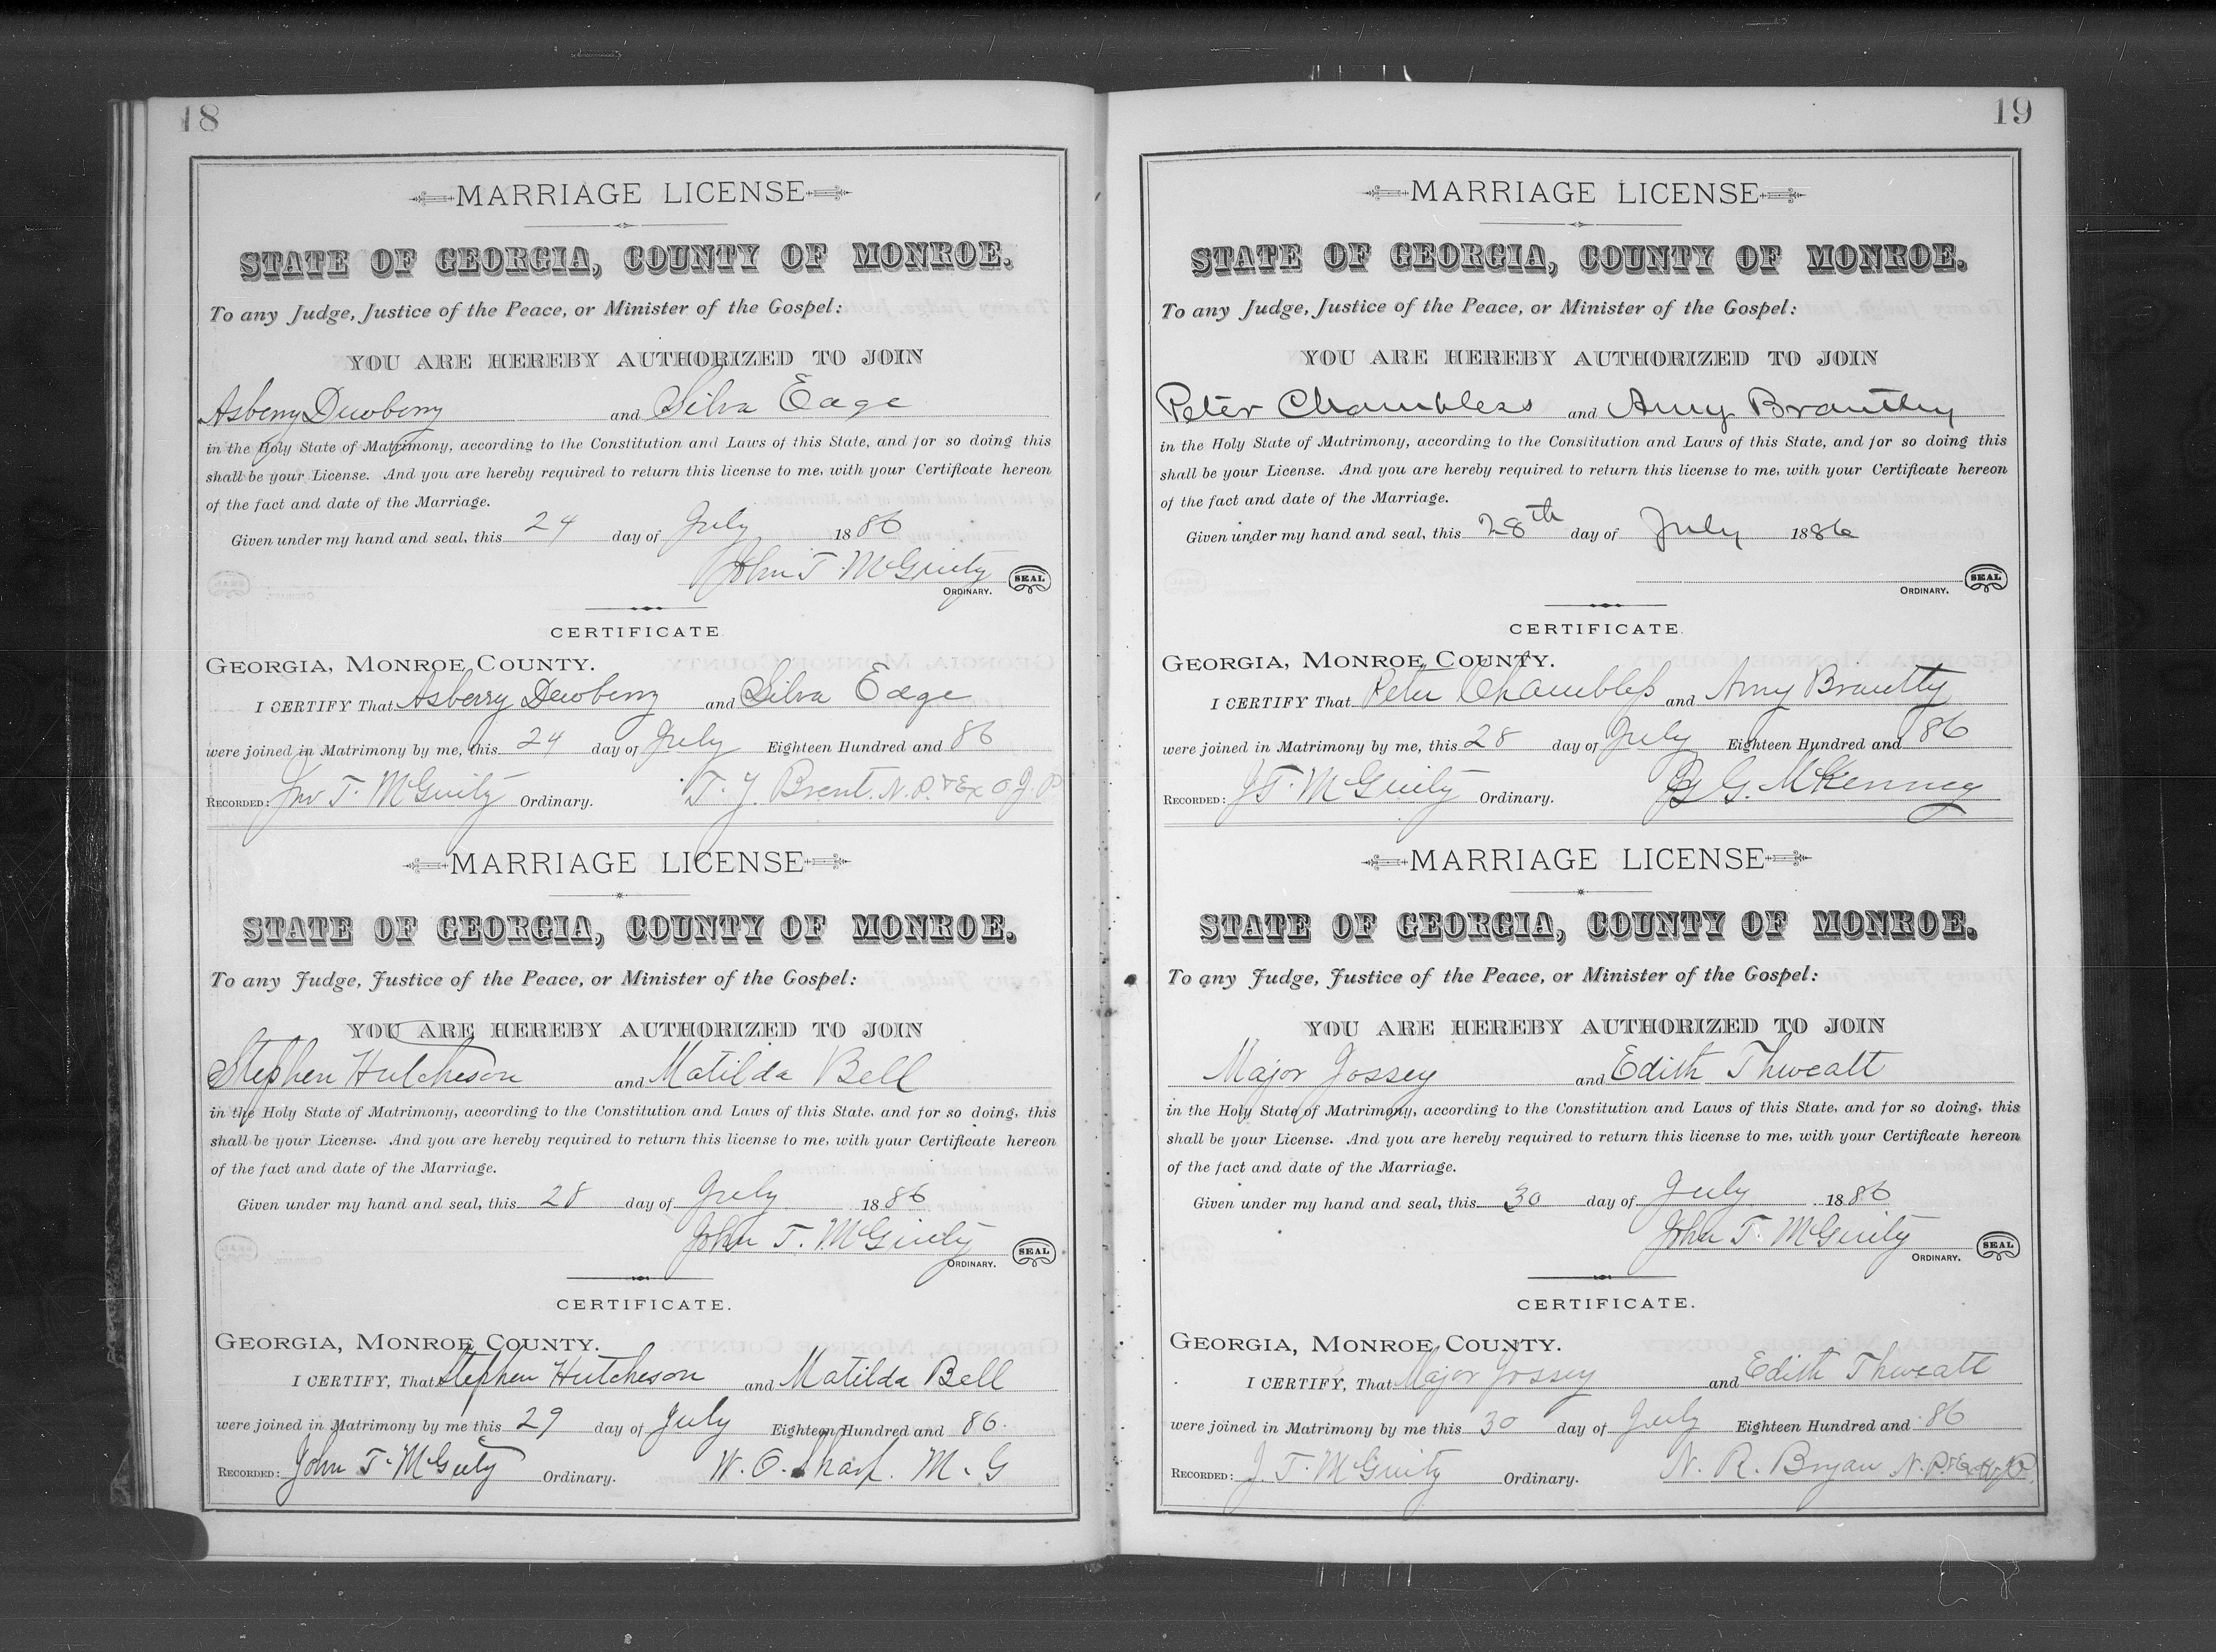 18
MARRIAGE LICENSE
STATE OF GEORGIA, COUNTY OF MONROE.
To any Judge, Justice of the Peace, or Minister of the Gospel:
YOU ARE HEREBY AUTHORIZED TO JOIN
Asberry Dewberry and Silva Eage
in the Holy State of Matrimony, according to the Constitution and Laws of this State, and for so doing this
shall be your License. And you are hereby required to return this license to me, with your Certificate hereon
of the fact and date of the Marriage.
Given under my hand and seal, this 24 day of July 1886
John T. McGinty
ORDINARY. SEAL
CERTIFICATE.
GEORGIA, MONROE COUNTY.
I CERTIFY That Asberry Dewberry and Silva Eage
were joined in Matrimony by me, this 24 day of July Eighteen Hundred and 86
RECORDED: Jno T. McGinty Ordinary. T. J. Brent. N.P. & Ex O.J.P
MARRIAGE LICENSE
STATE OF GEORGIA, COUNTY OF MONROE.
To any Judge, Justice of the Peace, or Minister of the Gospel:
YOU ARE HEREBY AUTHORIZED TO JOIN
Stephen Hutcheson and Matilda Bell
in the Holy State of Matrimony, according to the Constitution and Laws of this State, and for so doing, this
shall be your License. And you are hereby required to return this license to me, with your Certificate hereon
of the fact and date of the Marriage.
Given under my hand and seal, this 28 day of July 1886
John T. McGinty
ORDINARY. SEAL
CERTIFICATE.
GEORGIA, MONROE COUNTY.
I CERTIFY, That Stephen Hutcheson and Matilda Bell
were joined in Matrimony by me this 29 day of July Eighteen Hundred and 86.
RECORDED: John T. McGinty Ordinary. W. O. Sharp. M. G
19
MARRIAGE LICENSE
STATE OF GEORGIA, COUNTY OF MONROE.
To any Judge, Justice of the Peace, or Minister of the Gospel:
YOU ARE HEREBY AUTHORIZED TO JOIN
Peter Chambless and Amy Brantley
in the Holy State of Matrimony, according to the Constitution and Laws of this State, and for so doing this
shall be your License. And you are hereby required to return this license to me, with your Certificate hereon
of the fact and date of the Marriage.
Given under my hand and seal, this 28th day of July 1886
ORDINARY. SEAL
CERTIFICATE.
GEORGIA, MONROE COUNTY.
I CERTIFY That Peter Chambless and Amy Brantly
were joined in Matrimony by me, this 28 day of July Eighteen Hundred and 86
RECORDED: J T. McGinty Ordinary. G. McKenney
MARRIAGE LICENSE
STATE OF GEORGIA, COUNTY OF MONROE.
To any Judge, Justice of the Peace, or Minister of the Gospel:
YOU ARE HEREBY AUTHORIZED TO JOIN
Major Jossey and Edith Thweatt
in the Holy State of Matrimony, according to the Constitution and Laws of this State, and for so doing, this
shall be your License. And you are hereby required to return this license to me, with your Certificate hereon
of the fact and date of the Marriage.
Given under my hand and seal, this 30 day of July 1886
John T. McGinty
ORDINARY. SEAL
CERTIFICATE.
GEORGIA, MONROE COUNTY.
I CERTIFY, That Major Jossey and Edith Thweatt
were joined in Matrimony by me this 30 day of July Eighteen Hundred and 86
RECORDED: J. T. McGinty Ordinary. N. R. Bryan N.P.